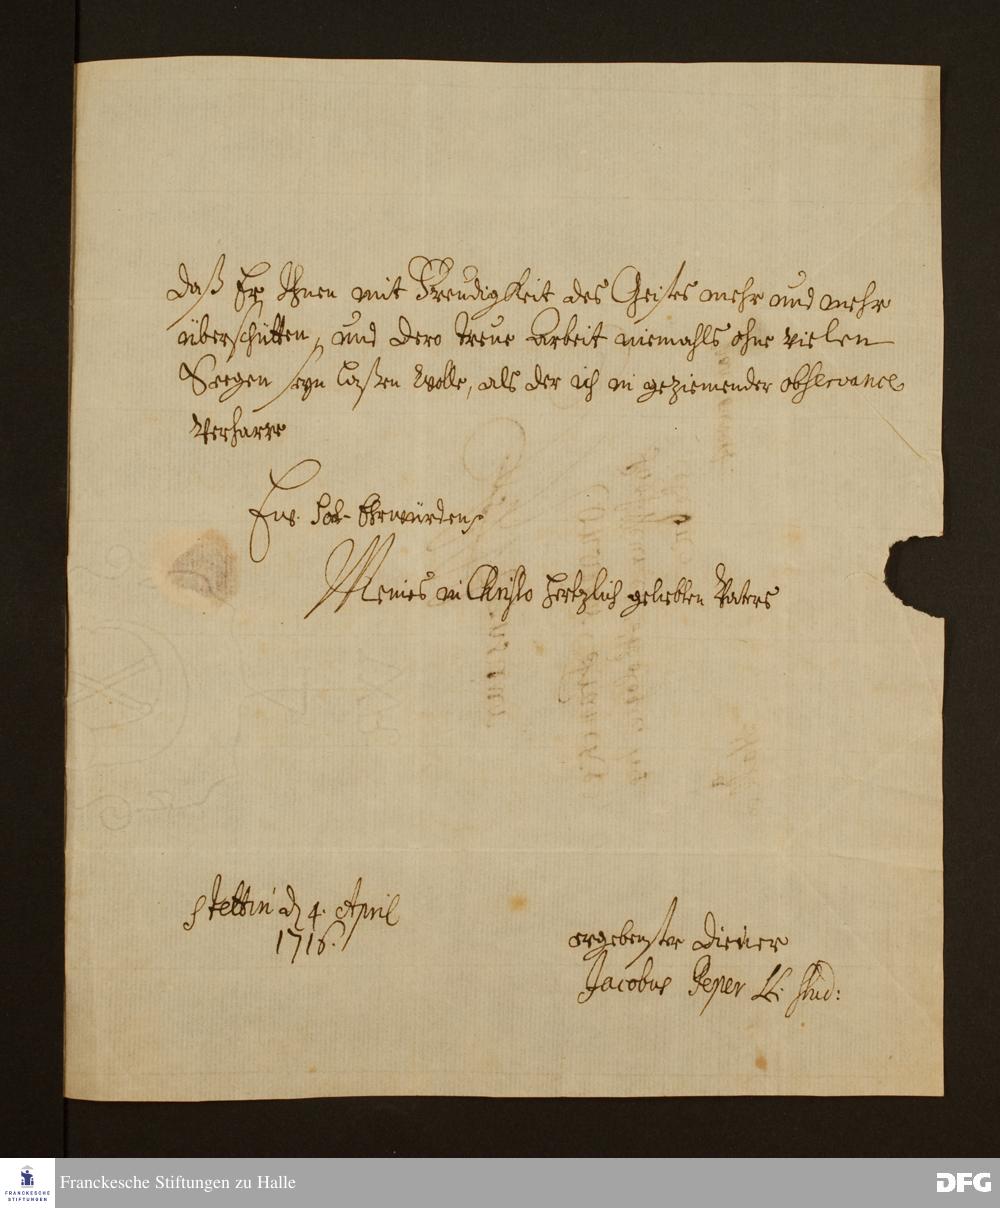 daß Er Ihnen mit Freudigkeit des Geistes mehr und mehr
überschütten, und dero treue Arbeit niemahls ohne vielen
Seegen seyn laßen wolle, als der ich in geziemender observance
verharre
Ew. Hoch- Ehrwürden
Meines in Christo hertzlich geliebten Vaters
Stettin d 4. April
1716.
ergebenster Diener
Jacobus Peper stud:
FRANCKESCHE
STIFTUNGEN
Franckesche Stiftungen zu Halle
DFG